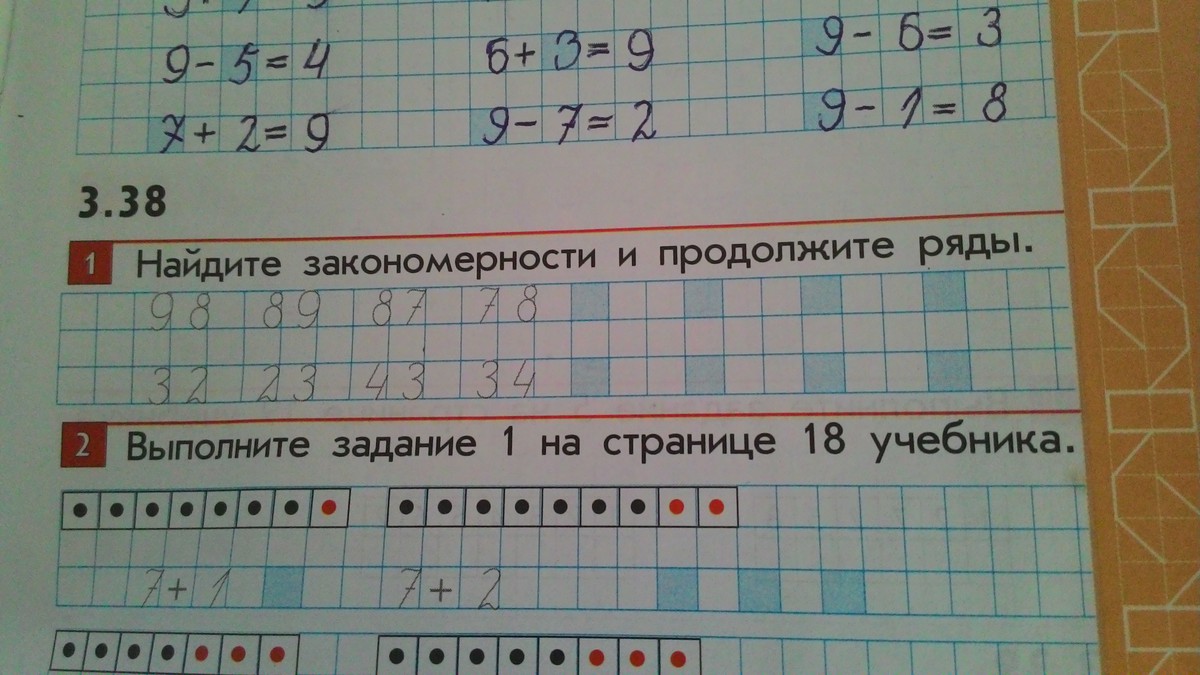 9 - 5 = 4 6 + 3 = 9 9 - 6 = 3
7 + 2 = 9 9 - 7 = 2 9 - 1 = 8
3.38
1 Найдите закономерности и продолжите ряды.
98 89 87 78
32 23 43 34
2 Выполните задание 1 на странице 18 учебника.
7 + 1 7 + 2